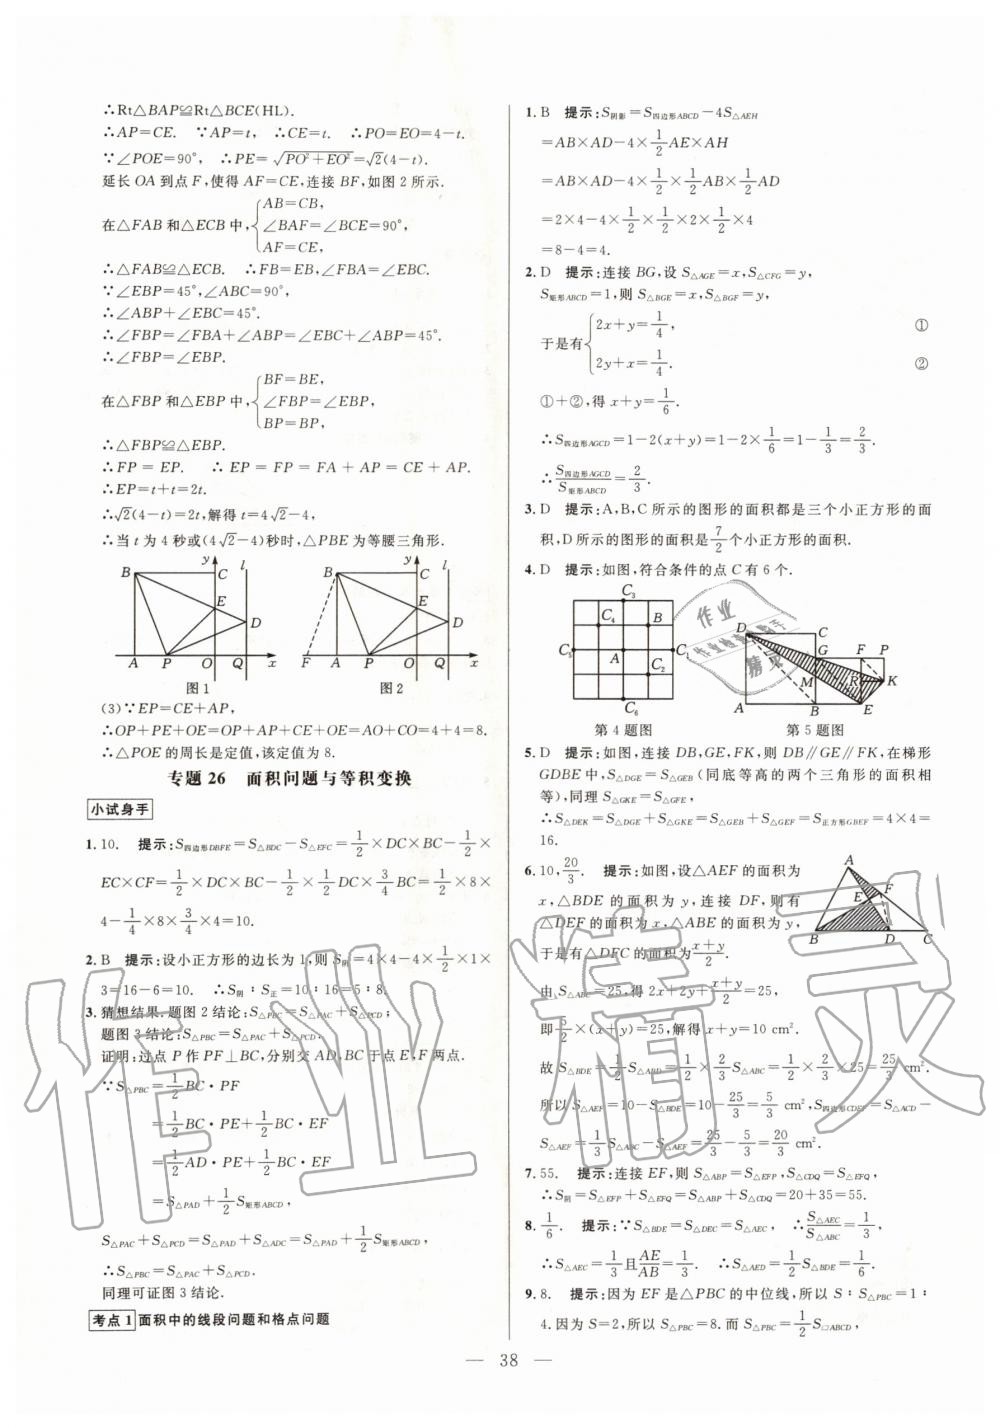 ∴Rt△BAP≌Rt△BCE(HL).
∴AP=CE. ∵AP=t, ∴CE=t. ∴PO=EO=4-t.
∵∠POE=90°, ∴PE=√(PO²+EO²)=√2(4-t).
延长 OA 到点 F,使得 AF=CE,连接 BF,如图 2 所示.
在△FAB 和△ECB 中,{AB=CB,
∠BAF=∠BCE=90°,
AF=CE,
∴△FAB≌△ECB. ∴FB=EB,∠FBA=∠EBC.
∵∠EBP=45°,∠ABC=90°,
∴∠ABP+∠EBC=45°.
∴∠FBP=∠FBA+∠ABP=∠EBC+∠ABP=45°.
∴∠FBP=∠EBP.
在△FBP 和△EBP 中,{BF=BE,
∠FBP=∠EBP,
BP=BP,
∴△FBP≌△EBP.
∴FP = EP. ∴ EP = FP = FA + AP = CE + AP.
∴EP=t+t=2t.
∴√2(4-t)=2t,解得 t=4√2-4,
∴当 t 为 4 秒或(4√2-4)秒时,△PBE 为等腰三角形.
B C y l E D A P O Q x
图 1
B C y l E D F A P O Q x
图 2
(3)∵EP=CE+AP,
∴OP+PE+OE=OP+AP+CE+OE=AO+CO=4+4=8.
∴△POE 的周长是定值,该定值为 8.
专题 26 面积问题与等积变换
小试身手
1. 10. 提示:S四边形DBFE=S△BDC-S△EFC=1/2×DC×BC-1/2×
EC×CF=1/2×DC×BC-1/2×1/4DC×3/4BC=1/2×8×
4-1/4×8×3/4×4=10.
2. B 提示:设小正方形的边长为 1,则 S阴=4×4-4×1/2×1×
3=16-6=10. ∴S阴∶S正=10∶16=5∶8.
3. 猜想结果:题图 2 结论:S△PBC=S△PAC+S△PCD;
题图 3 结论:S△PBC=S△PAC+S△PCD.
证明:过点 P 作 PF⊥BC,分别交 AD,BC 于点 E,F 两点.
∵S△PBC=1/2BC·PF
=1/2BC·PE+1/2BC·EF
=1/2AD·PE+1/2BC·EF
=S△PAD+1/2S矩形ABCD,
S△PAC+S△PCD=S△PAD+S△ADC=S△PAD+1/2S矩形ABCD,
∴S△PBC=S△PAC+S△PCD.
同理可证图 3 结论.
考点 1 面积中的线段问题和格点问题
1. B 提示:S阴影=S四边形ABCD-4S△AEH
=AB×AD-4×1/2AE×AH
=AB×AD-4×1/2×1/2AB×1/2AD
=2×4-4×1/2×1/2×2×1/2×4
=8-4=4.
2. D 提示:连接 BG,设 S△AGE=x,S△CFG=y,
S矩形ABCD=1,则 S△BGE=x,S△BGF=y,
于是有{2x+y=1/4, ①
2y+x=1/4. ②
①+②,得 x+y=1/6.
∴S四边形AGCD=1-2(x+y)=1-2×1/6=1-1/3=2/3.
∴S四边形AGCD/S矩形ABCD=2/3.
3. D 提示:A,B,C 所示的图形的面积都是三个小正方形的面
积,D 所示的图形的面积是7/2个小正方形的面积.
4. D 提示:如图,符合条件的点 C 有 6 个.
C₃ C₄ B C₅ A C₁ C₂ C₆
第 4 题图
D C G F P M R K A B E
第 5 题图
5. D 提示:如图,连接 DB,GE,FK,则 DB∥GE∥FK,在梯形
GDBE 中,S△DGE=S△GEB(同底等高的两个三角形的面积相
等),同理 S△GKE=S△GFE,
∴S△DEK=S△DGE+S△GKE=S△GEB+S△GEF=S正方形GBEF=4×4=
16.
6. 10,20/3. 提示:如图,设△AEF 的面积为
x,△BDE 的面积为 y,连接 DF,则有
△DEF 的面积为 x,△ABE 的面积为 y,
于是有△DFC 的面积为(x+y)/2.
A E F B D C
由 S△ABC=25,得 2x+2y+(x+y)/2=25,
即5/2×(x+y)=25,解得 x+y=10 cm².
故 S△BDE=1/2S△ABD=1/2×2/3S△ABC=1/2×2/3×25=25/3 cm².
所以 S△AEF=10-S△BDE=10-25/3=5/3 cm²,S四边形CDEF=S△ACD-
S△AEF=1/3S△ABC-S△AEF=25/3-5/3=20/3 cm².
7. 55. 提示:连接 EF,则 S△ABP=S△EFP,S△CDQ=S△EFQ,
∴S阴=S△EFP+S△EFQ=S△ABP+S△CDQ=20+35=55.
8. 1/6. 提示:∵S△BDE=S△DEC=S△AEC, ∴S△AEC/S△ABC=1/3,
∴S△AEC=1/3且AE/AB=1/3. ∴S△AED=1/2S△BDE=1/6.
9. 8. 提示:因为 EF 是△PBC 的中位线,所以 S∶S△PBC=1∶
4.因为 S=2,所以 S△PBC=8.而 S△PBC=1/2S□ABCD,
— 38 —
作业精灵